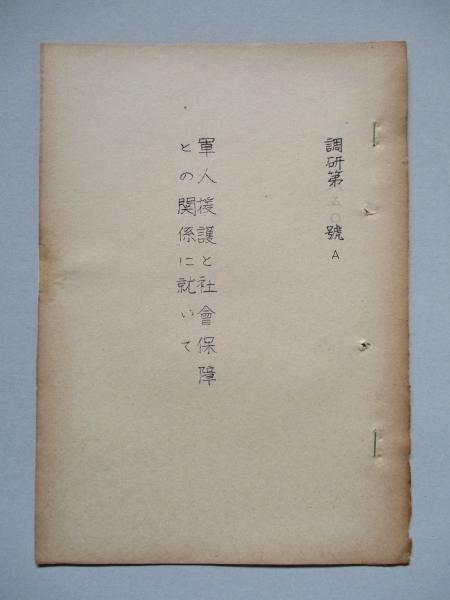 調研第五〇號A
軍人援護と社會保障
との関係に就いて